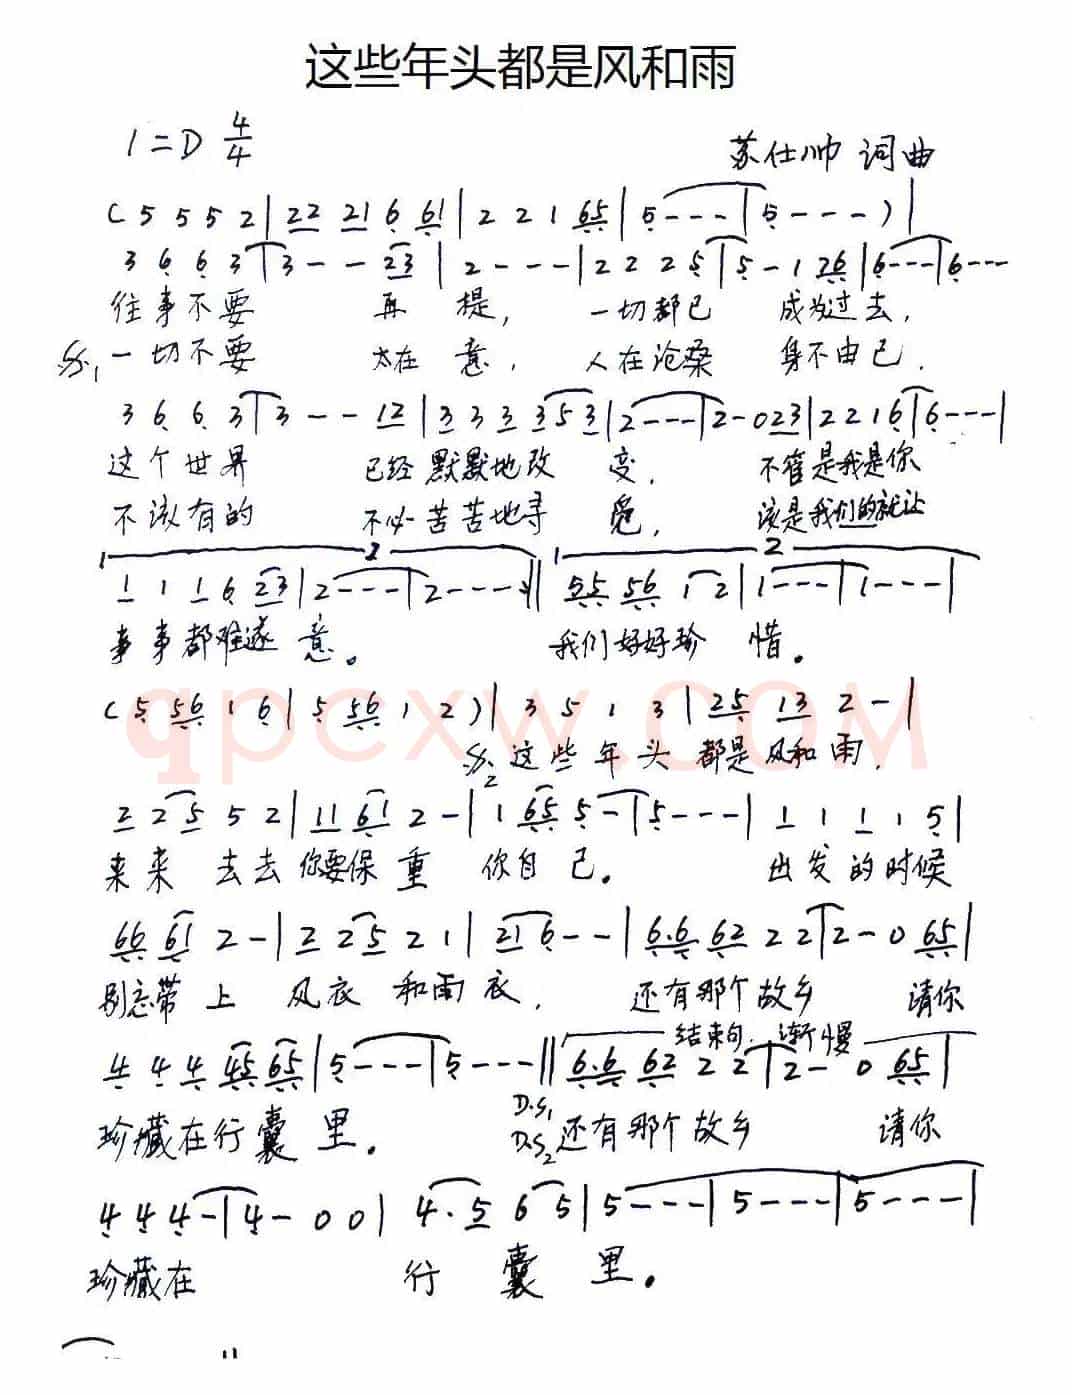 这些年头都是风和雨
1=D 4/4
苏仕帅 词曲
( 5 5 5 2 | 22 21 6 61 | 2 2 1 65 | 5 - - - | 5 - - - ) |
3 6 6 3 | 3 - - 23 | 2 - - - | 2 2 2 5 | 5 - 1 26 | 6 - - - | 6 - - -
往事不要 再 提, 一切都已 成为过去,
𝄋1 一切不要 太在 意, 人在沧桑 身不由己.
3 6 6 3 | 3 - - 12 | 3 3 3 3 5 3 | 2 - - - | 2 - 0 23 | 2 2 1 6 | 6 - - - |
这个世界 已经默默地改 变, 不管是我是你
不该有的 不必苦苦地寻 觅, 该是我们的就让
1 2 1 2
1 1 1 6 23 | 2 - - - | 2 - - - :|| 55 56 1 2 | 1 - - - | 1 - - - |
事事都难遂 意。 我们好好珍 惜。
qpcxw.COM
( 5 56 1 6 | 5 56 1 2 ) | 3 5 1 3 | 25 13 2 - |
𝄋2 这些年头 都是风和雨,
2 2 5 5 2 | 11 61 2 - | 1 65 5 - | 5 - - - | 1 1 1 1 5 |
来来去去 你要保重 你自己。 出发的时候
66 61 2 - | 2 2 5 2 1 | 21 6 - - | 6.6 62 2 2 | 2 - 0 65 |
别忘带上 风衣 和雨衣, 还有那个故乡 请你
结束句. 渐慢
4 4 4 45 65 | 5 - - - | 5 - - - || 6.6 62 2 2 | 2 - 0 65 |
D.S1
珍藏在行囊里。 D.S2 还有那个故乡 请你
4 4 4 - | 4 - 0 0 | 4 . 5 6 5 | 5 - - - | 5 - - - | 5 - - - |
珍藏在 行 囊 里。